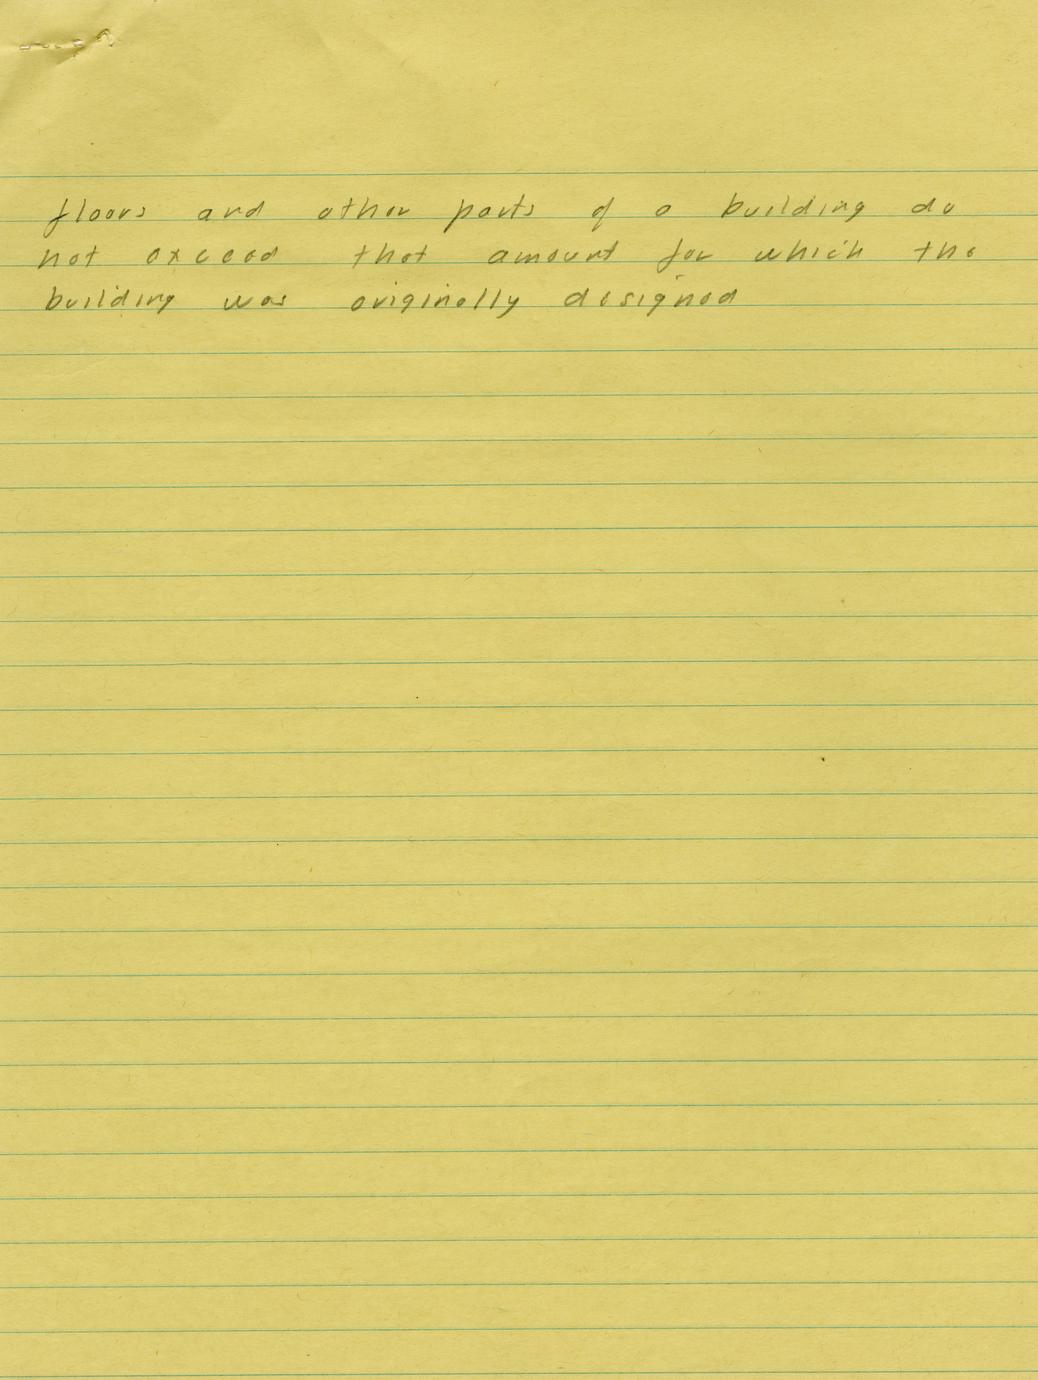 floors and other parts of a building do
not exceed that amount for which the
building was originally designed